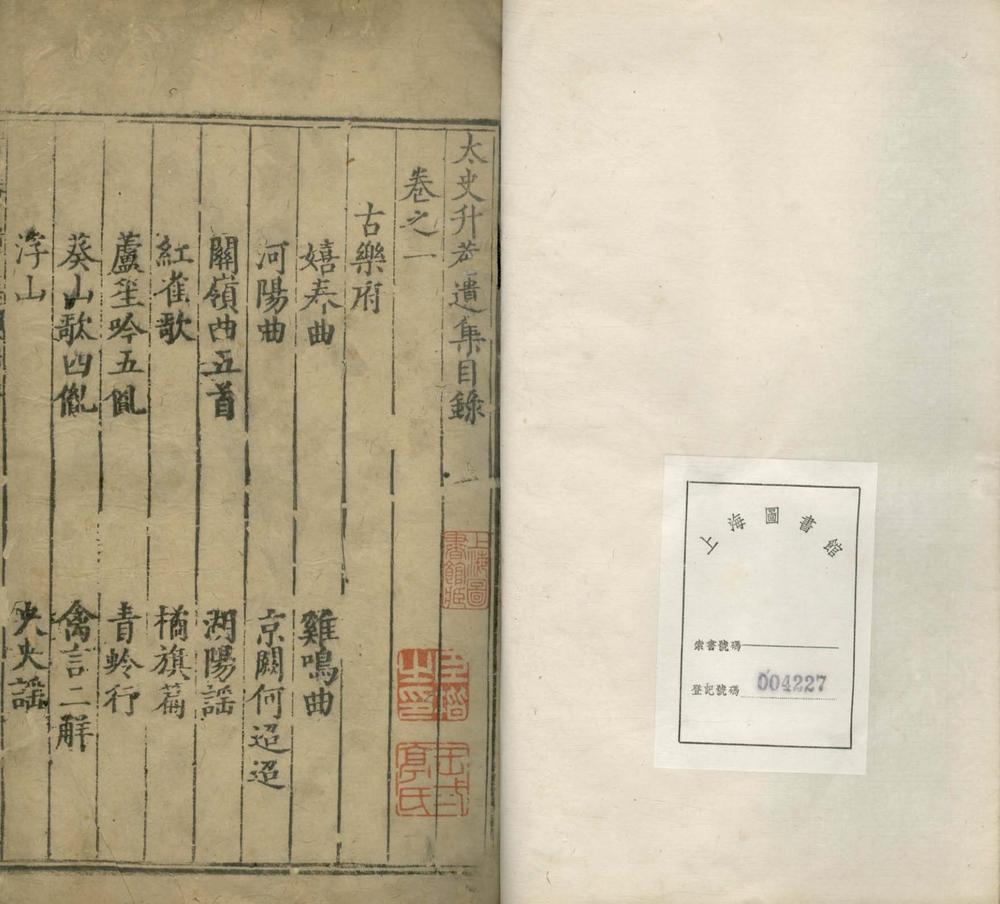 上海圖書館
索書號碼
登記號碼 004227
太史升菴遺集目錄 上
卷之一
古樂府
嬉春曲 雞鳴曲
河陽曲 京闕何迢迢
關嶺曲五首 湖陽謡
紅雀歌 橘旗篇
蘆笙吟五首 青蛉行
葵山歌四首 禽言二解
浮山 火史謡
上海圖書館藏